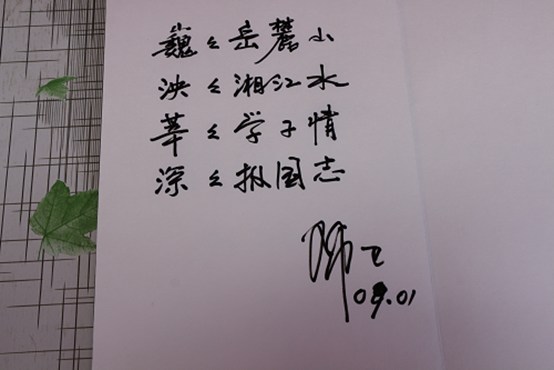 巍々岳麓山
泱々湘江水
莘々学子情
深々报国志
09.01